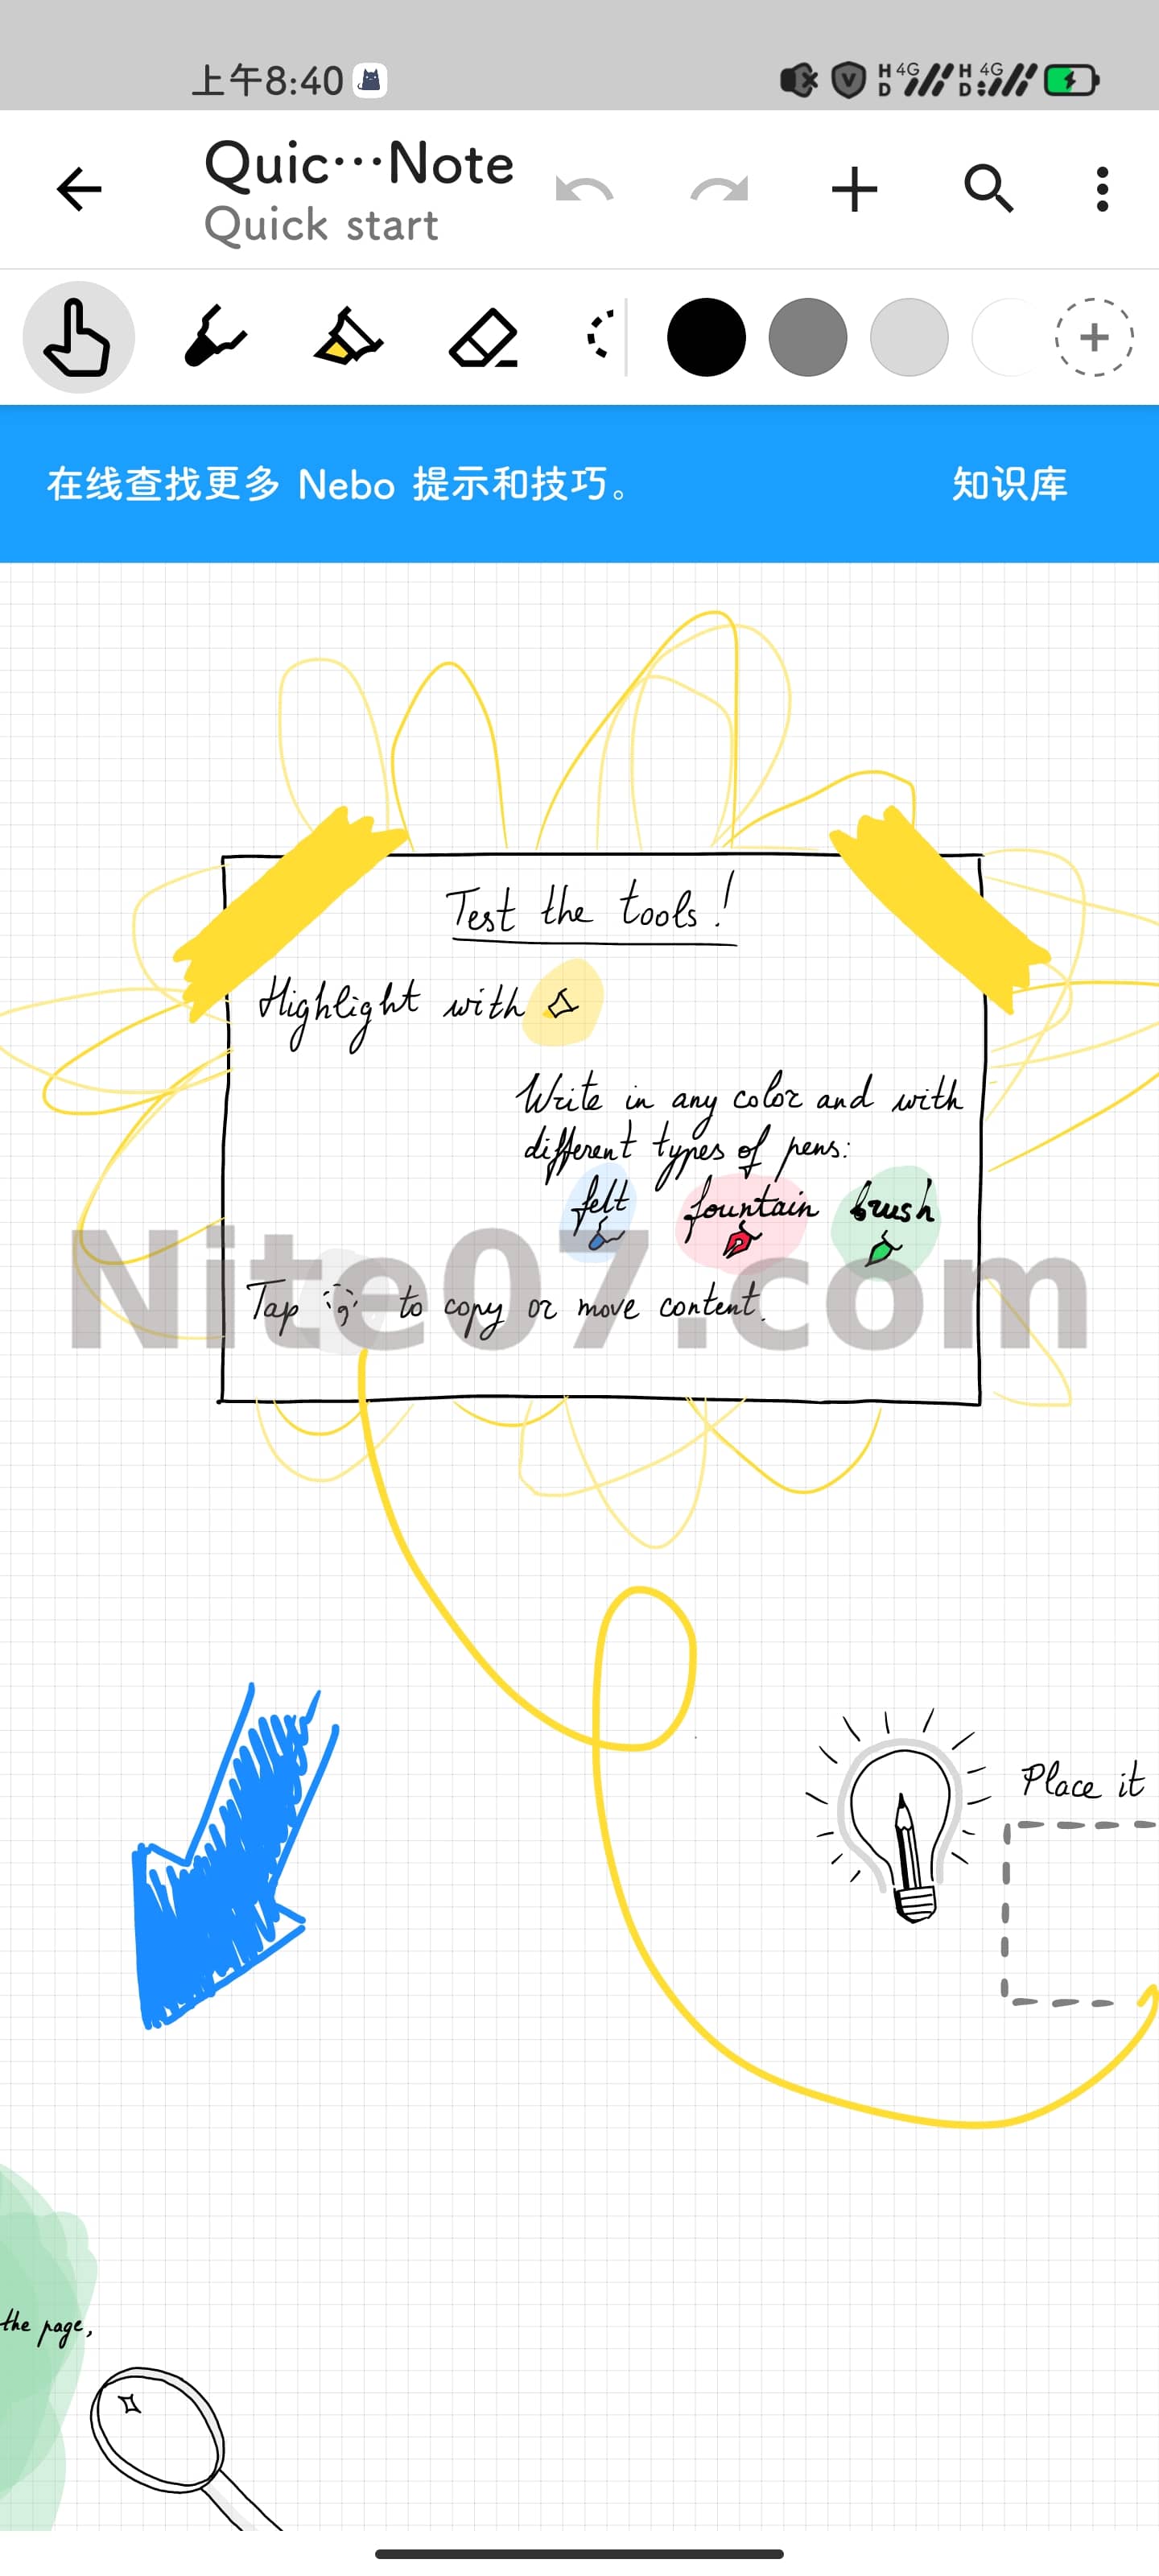 上午8:40
HD 4G HD 4G
Quic···Note
Quick start
在线查找更多 Nebo 提示和技巧。 知识库
Test the tools!
Highlight with
Write in any color and with
different types of pens:
felt fountain brush
Nite07.com
Tap to copy or move content.
Place it
the page,